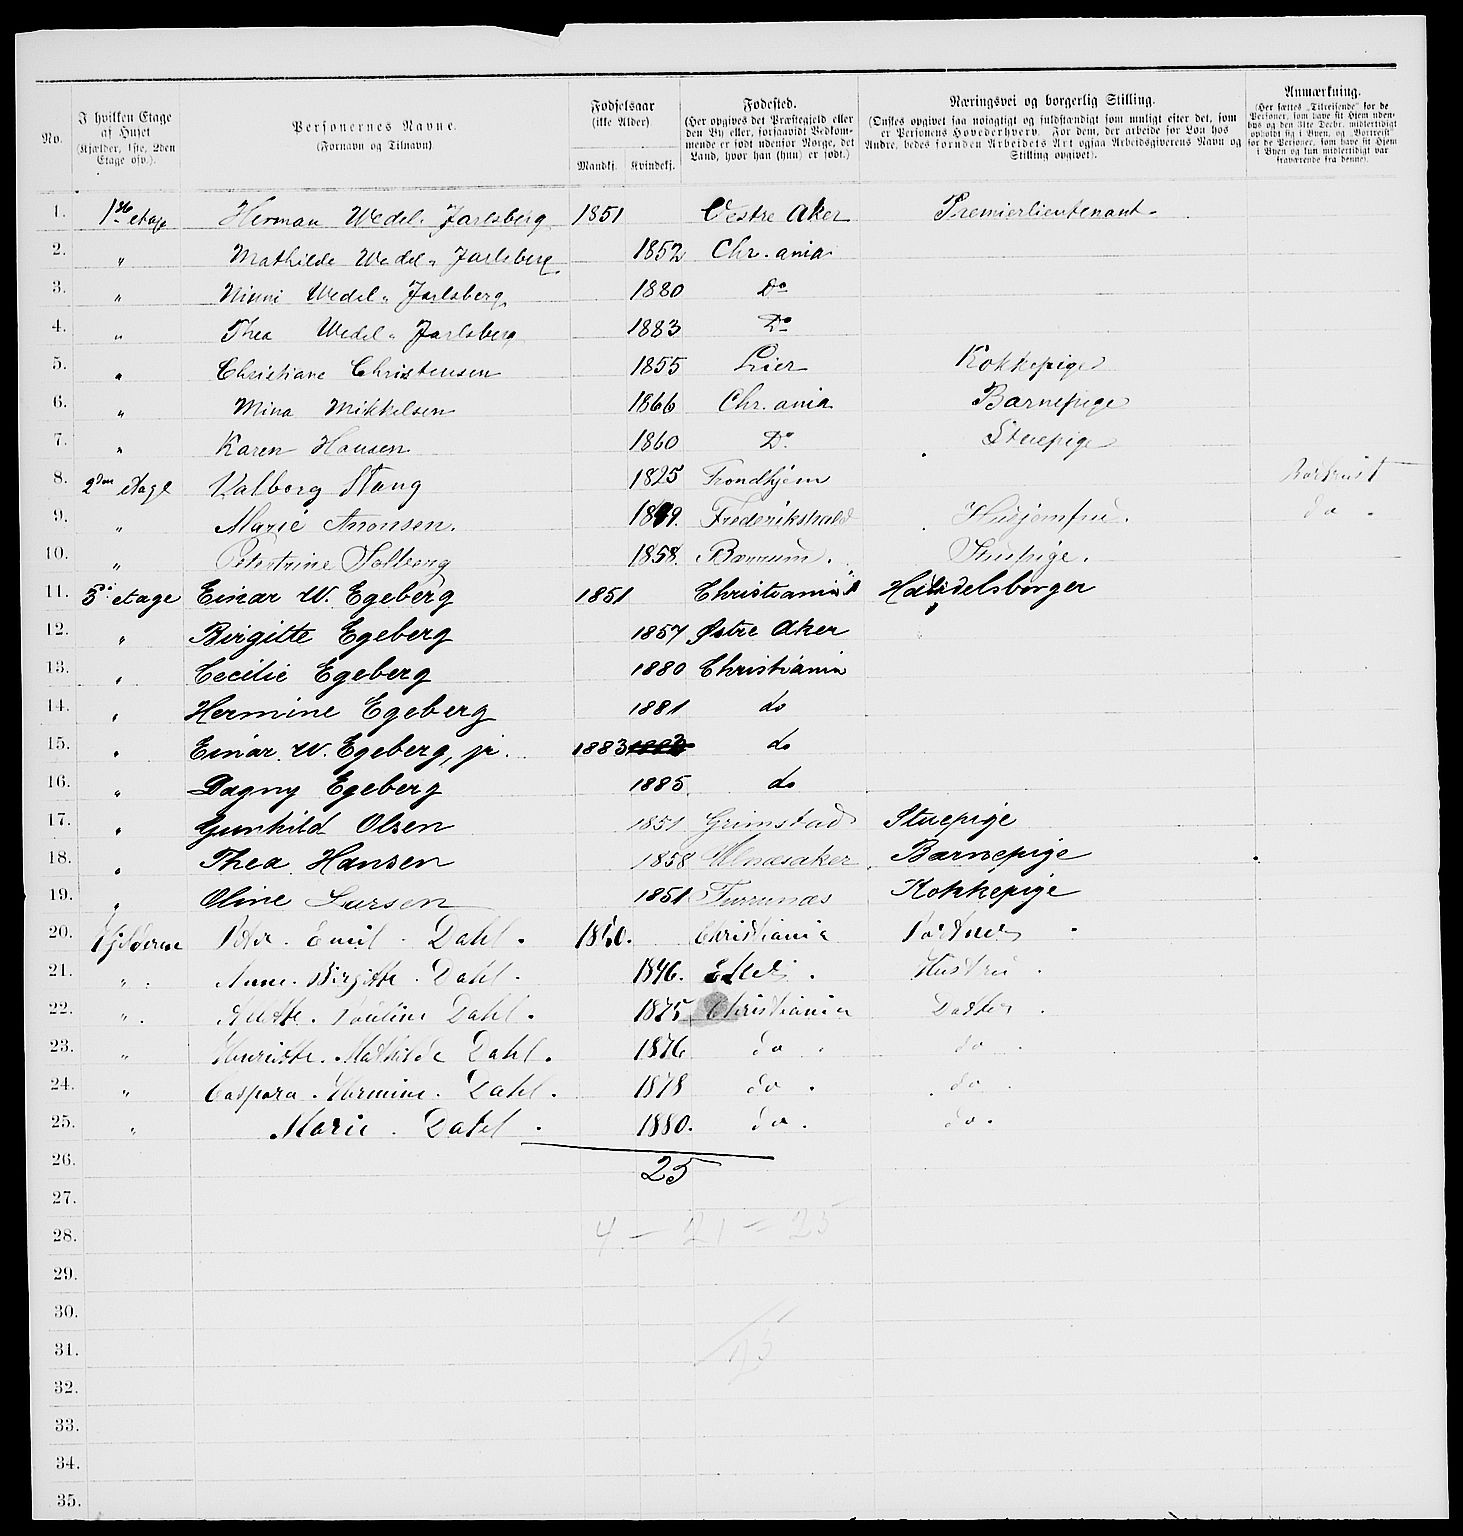 No. | I hvilken Etage af Huset (Kjælder, 1ste, 2den Etage osv.). | Personernes Navne. (Fornavn og Tilnavn) | Fødselsaar (ikke Alder) Mandkj. Kvindekj. | Fødested. (Her opgives det Præstegjeld eller den By eller, forsaavidt Vedkommende er født udenfor Norge, det Land, hvor han (hun) er født.) | Næringsvei og borgerlig Stilling. (Ønskes opgivet saa nøiagtigt og fuldstændigt som muligt efter det, som er Personens Hovederhverv. For dem, der arbeide for Løn hos Andre, bedes foruden Arbeidets Art ogsaa Arbeidsgiverens Navn og Stilling opgivet). | Anmærkning. (Her sættes „Tilreisende" for de Personer, som have sit Hjem udenbys og den 31te Decbr. midlertidigt opholdt sig i Byen, og „Bortreist" for de Personer, som have sit Hjem i Byen og kun midlertidigt var fraværende fra denne).
1. 1ste etage Herman Wedel-Jarlsberg 1851 Vestre Aker Premierlieutenant.
2. " Mathilde Wedel-Jarlsberg 1852 Chr.ania
3. " Ninni Wedel-Jarlsberg 1880 Do
4. " Thea Wedel-Jarlsberg 1883 Do
5. " Christiane Christensen 1855 Lier Kokkepige
6. " Mina Mikkelsen 1866 Chr.ania Barnepige
7. " Karen Hansen 1860 Do Stuepige
8. 2den Etage Valborg Stang 1825 Trondhjem Bortreist
9. " Marie Aronsen. Frederikshald Husjomfru. do.
10. " 1858. Bærum. Stuepige.
11. 3die etage Einar W. Egeberg 1851 Christiania Handelsborger
12. " Birgitte Egeberg 1857 Østre Aker
13. " Cecilie Egeberg 1880 Christiania
14. " Hermine Egeberg 1881 do
15. " Einar W. Egeberg, jr. 1883 do
16. " Dagny Egeberg 1885 do
17. " Gunhild Olsen 1851 Grimstad Stuepige
18. " Thea Hansen 1858 Barnepige
19. " Oline Larsen 1851 Kokkepige
20. Peder. Emil. Dahl. Christiania Portner
21. " Anne. Birgitte. Dahl. 1846. Hustru.
22. " Pauline Dahl. 1875 Christiania Datter
23. " Henriette. Mathilde Dahl. 1876 do. do.
24. " Caspara. Hermine. Dahl. 1878 do. do.
25. " Marie. Dahl. 1880. do. do.
26. 25
27.
28. 4 – 21 = 25
29.
30.
31.
32.
33.
34.
35.